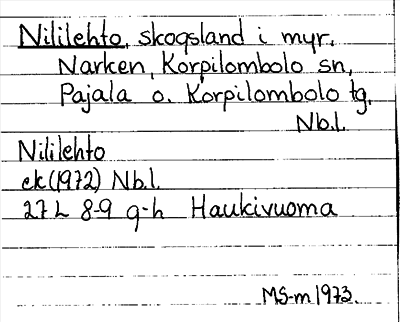 Nililehto, skogsland i myr.
Narken, Korpilombolo sn,
Pajala o. Korpilombolo tg,
Nb.l.
Nililehto
ek (1972) Nb.l.
27 L 8-9 g-h Haukivuoma
MS-m 1973.